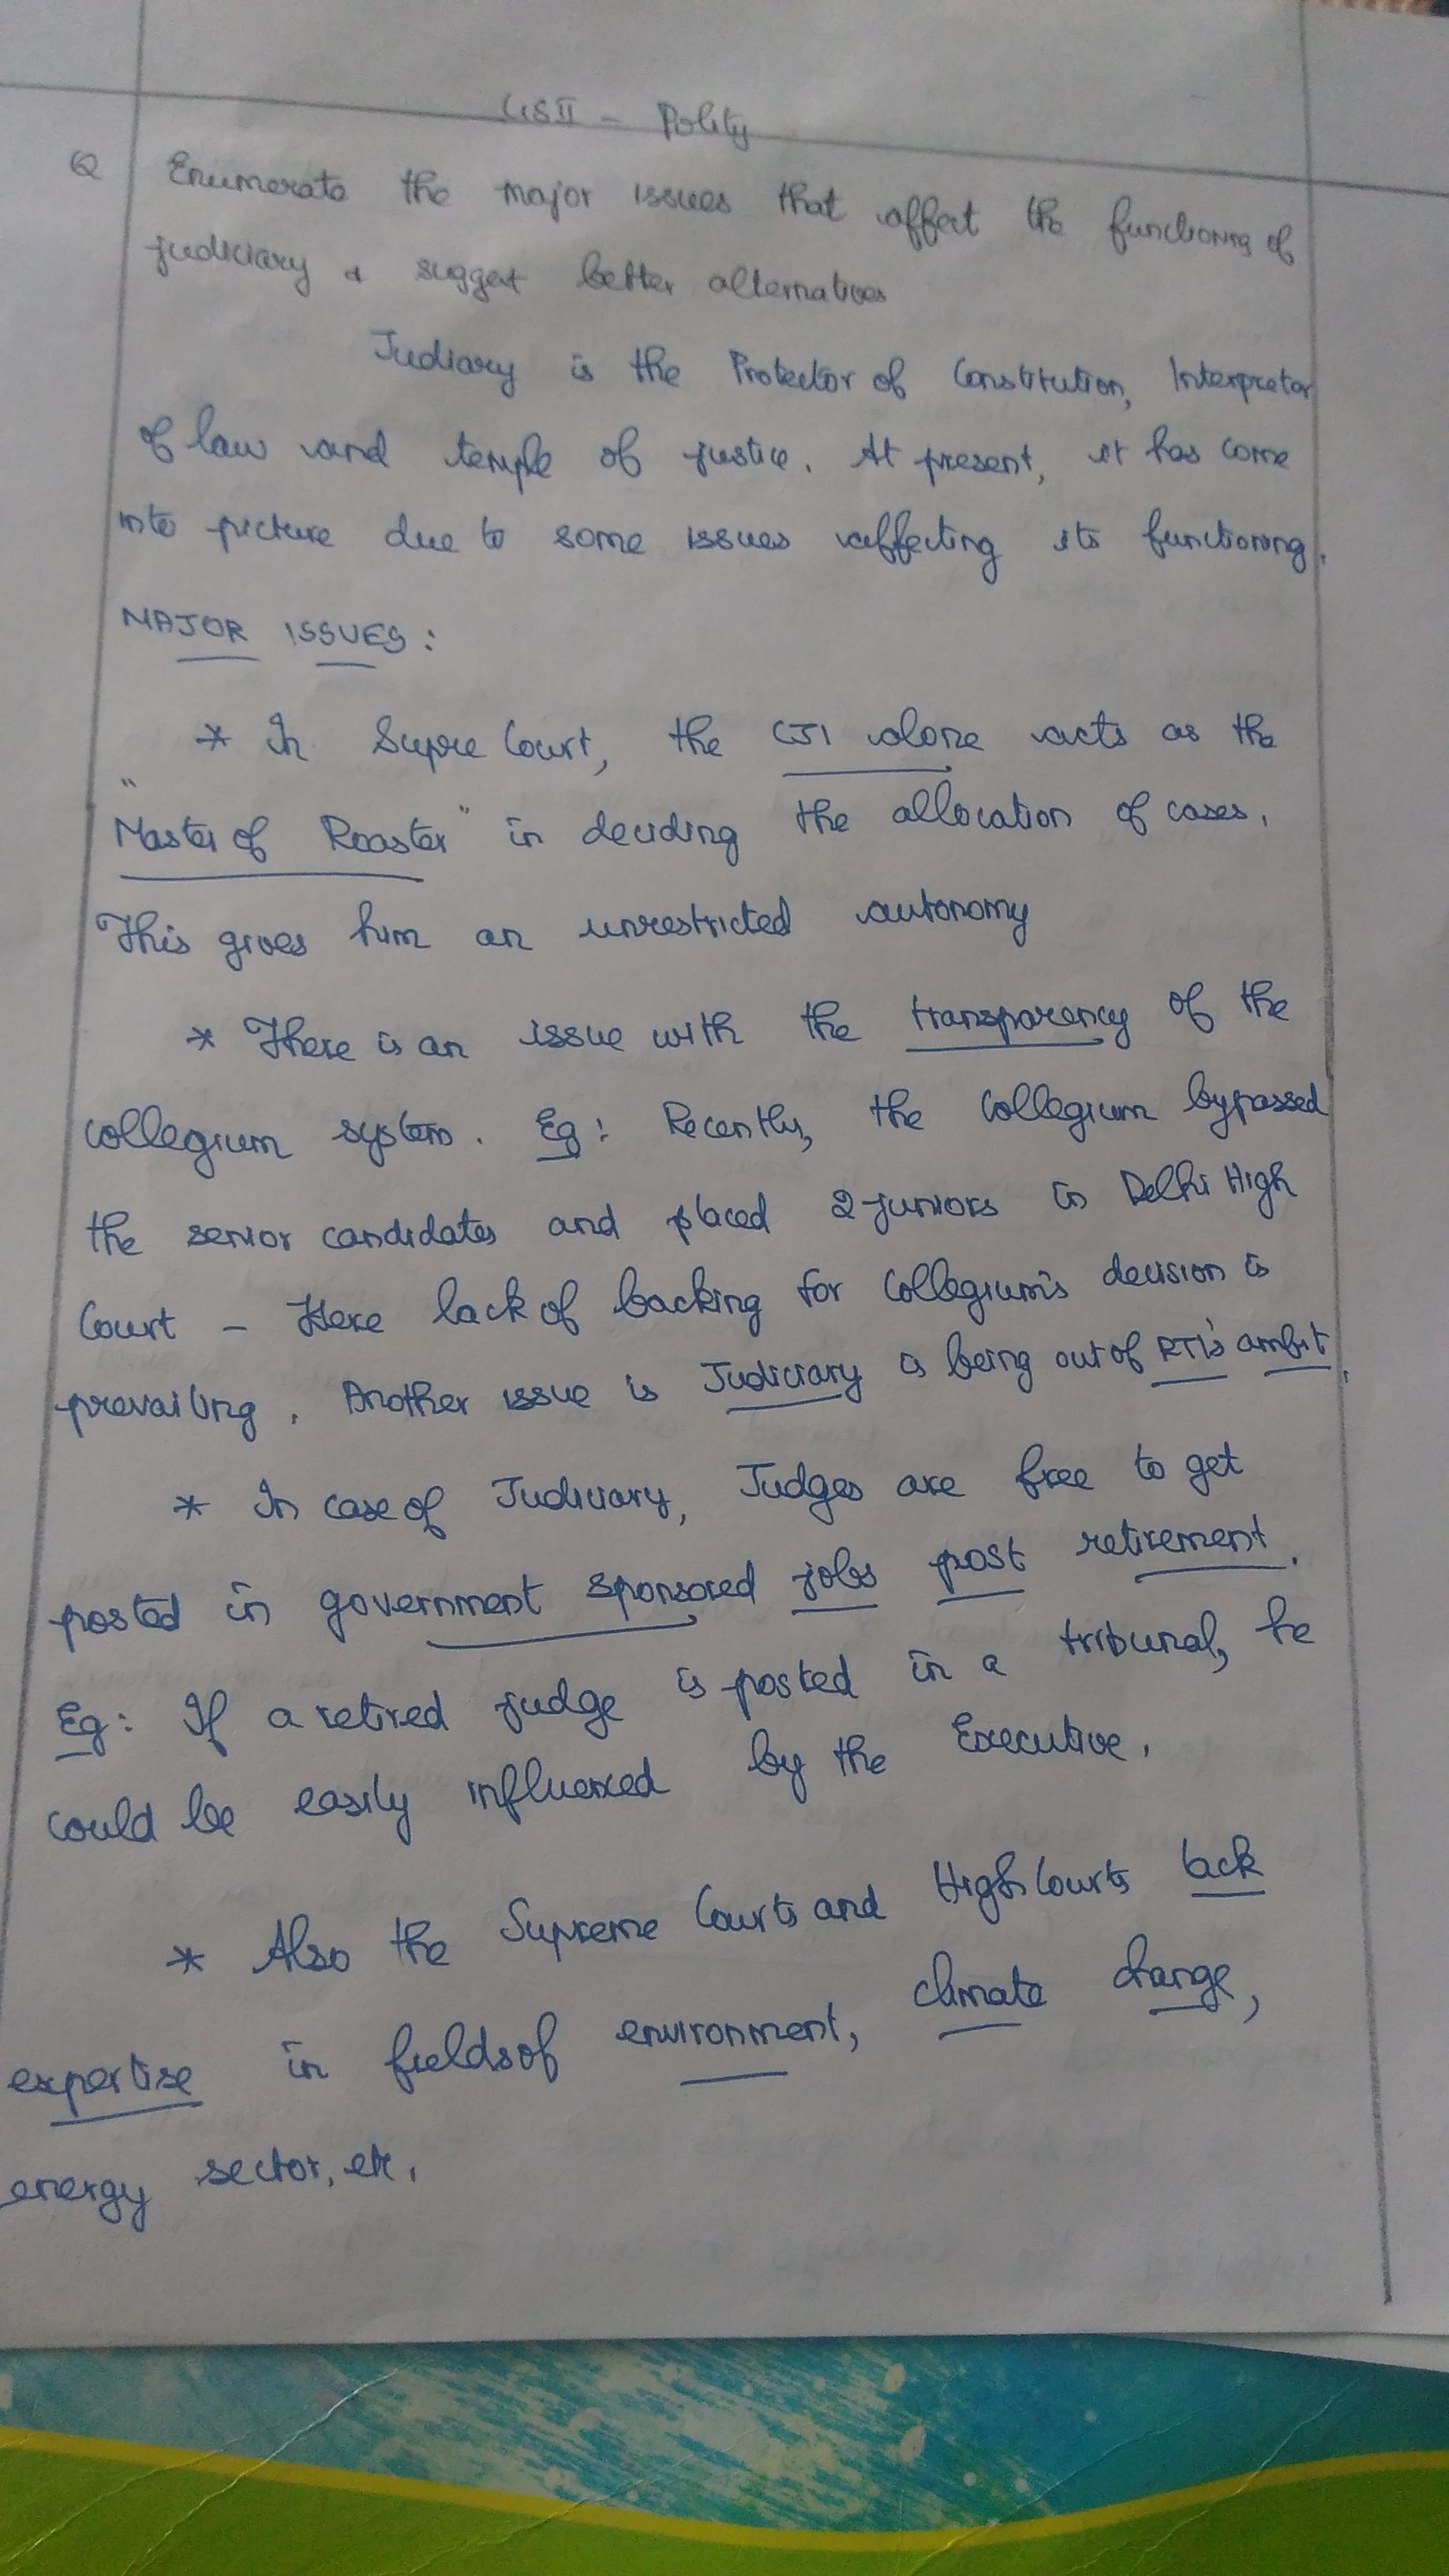 GS II - Polity
Q Enumerate the major issues that affect the functioning of
judiciary & suggest better alternatives
Judiary is the Protector of Constitution, Interpretor
of law and temple of justice. At present, it has come
into picture due to some issues affecting its functioning.
MAJOR ISSUES:
* In Supre Court, the CJI alone acts as the
"Master of Roaster" in deciding the allocation of cases.
This gives him an unrestricted autonomy
* There is an issue with the transparency of the
collegium system. Eg: Recently, the collegium bypassed
the senior candidates and placed 2 juniors in Delhi High
Court - Here lack of backing for collegium's decision is
prevailing. Another issue is Judiciary is being out of RTI's ambit.
* In case of Judiciary, Judges are free to get
posted in government sponsored jobs post retirement.
Eg: If a retired judge is posted in a tribunal, he
could be easily influenced by the Executive.
* Also the Supreme Courts and High Courts lack
expertise in fields of environment, climate change,
energy sector, etc.